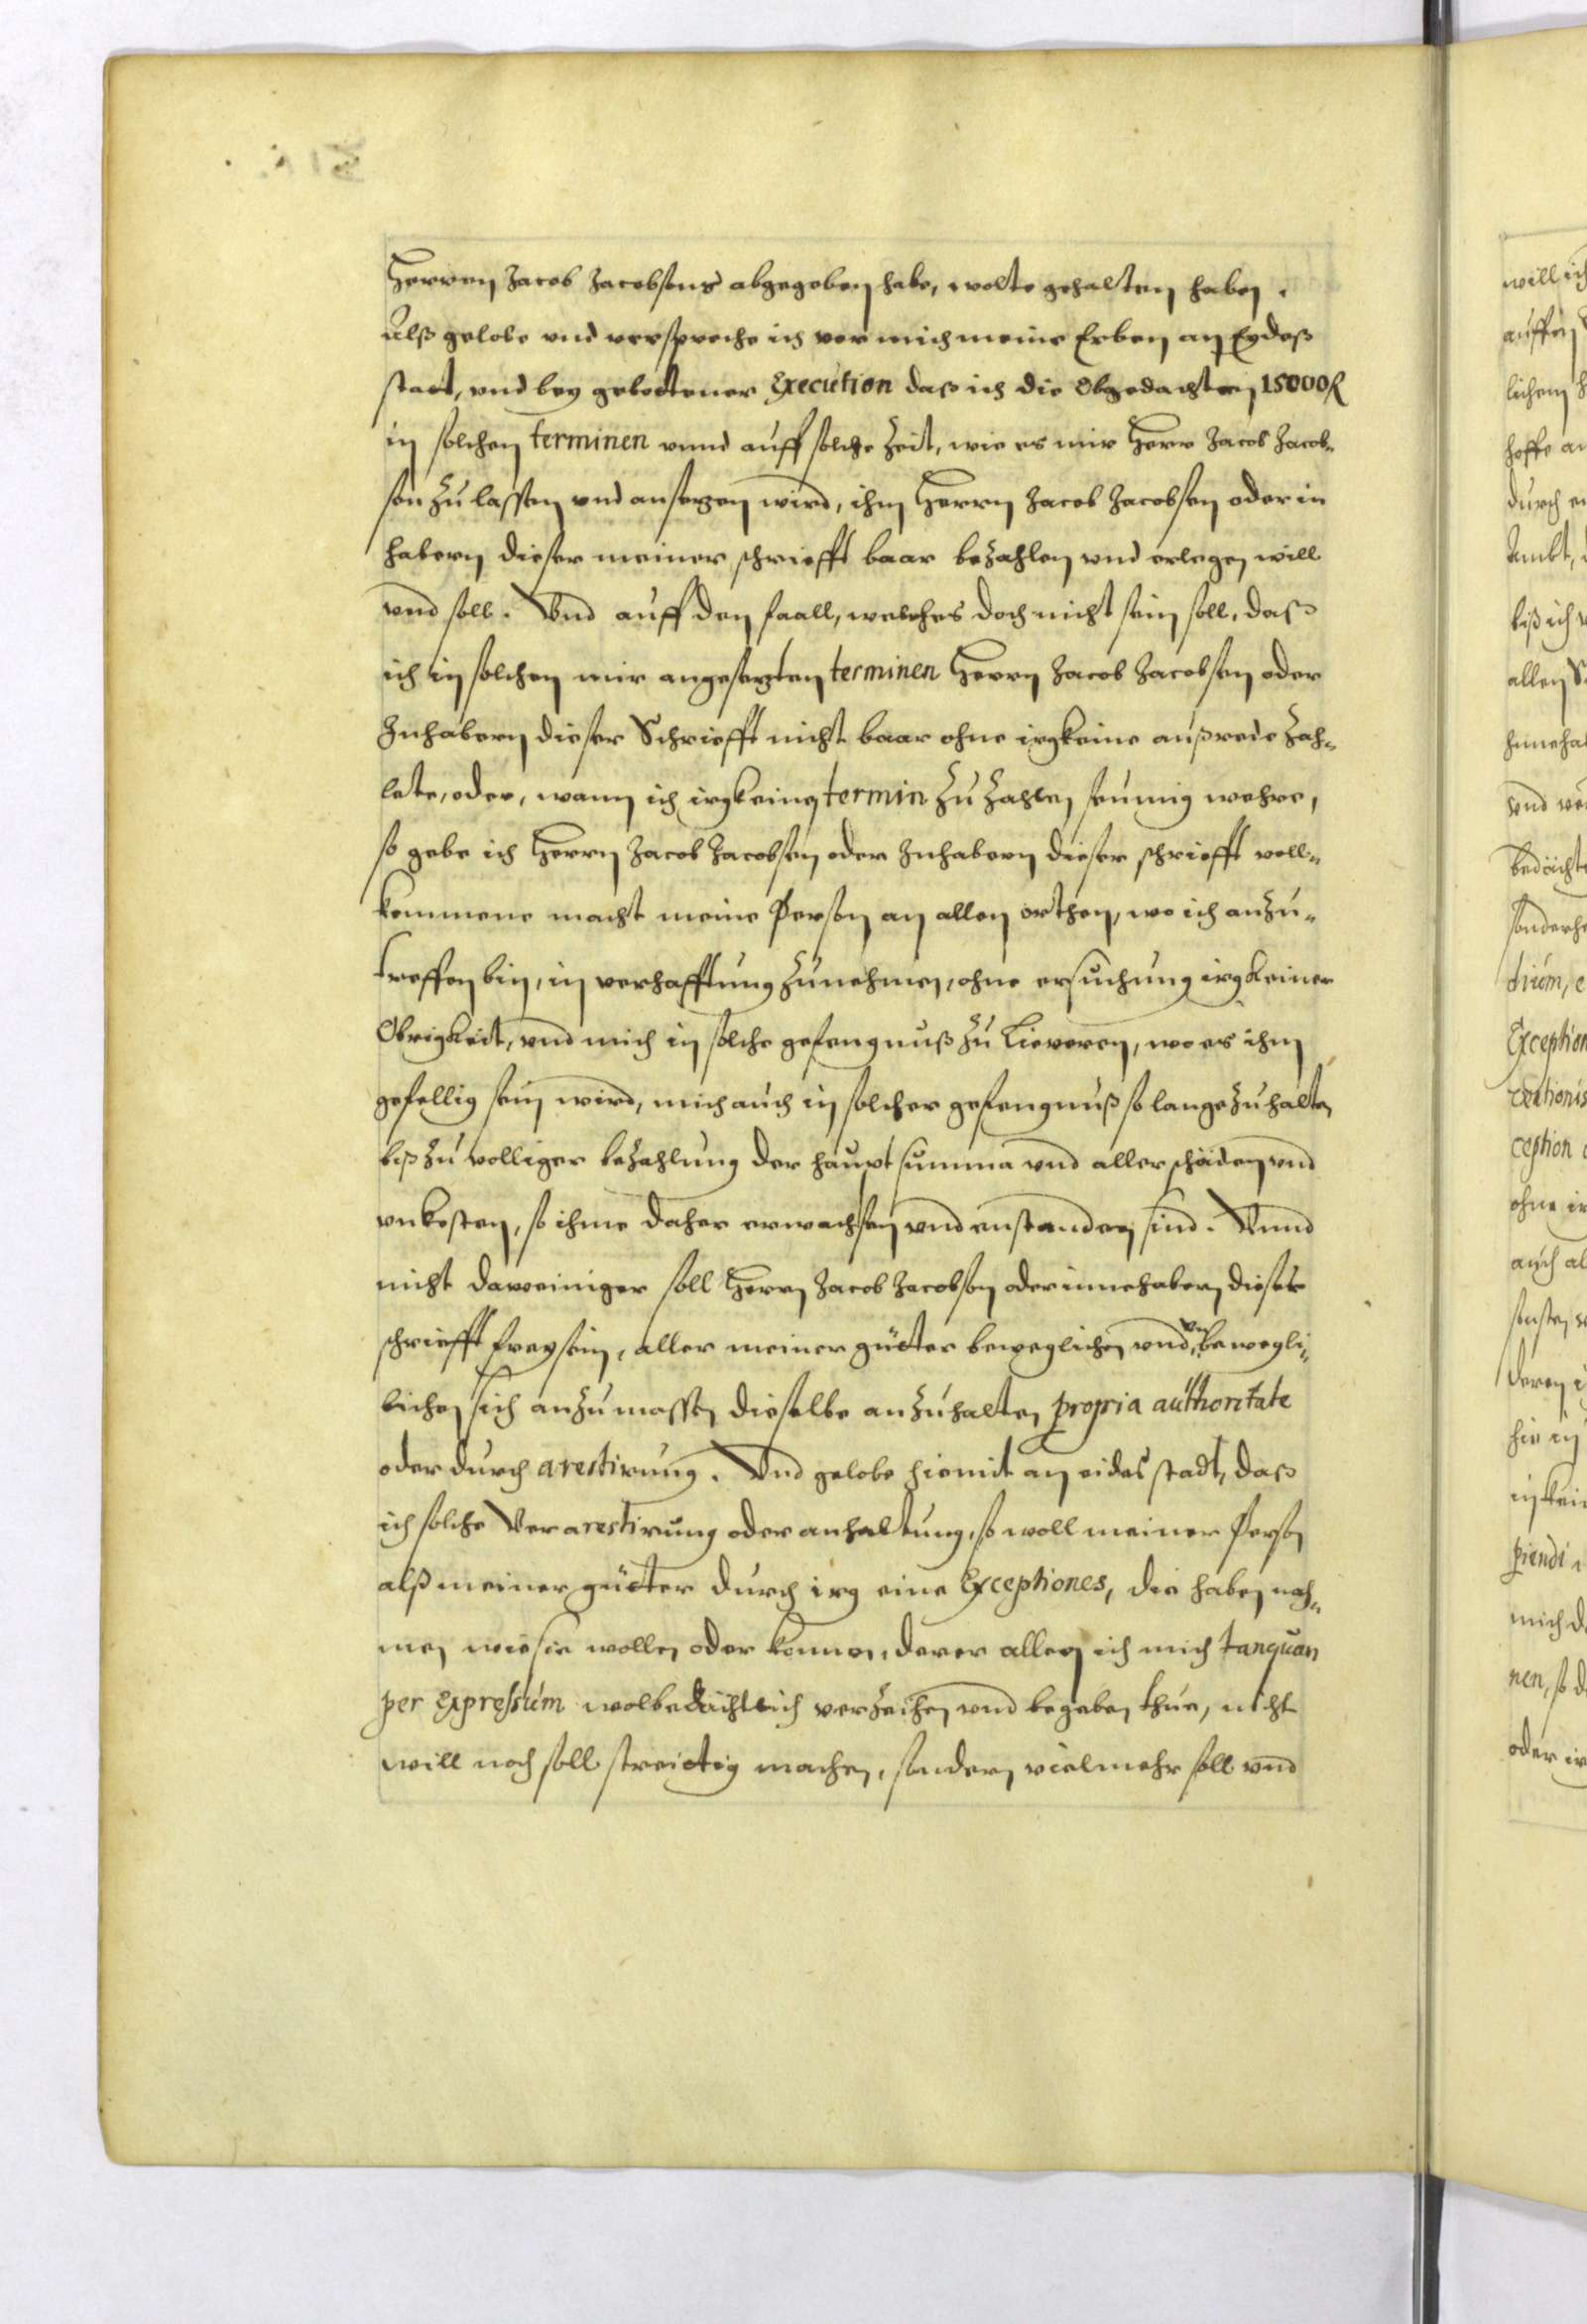 Herren Jacob Jacobsens abgegeben habe, wolte gehalten haben.
Alß gelobe und verspreche ich vor mich meine Erben an Eydeß
statt, und bey gebottener Execution daß ich die Obgedachten 15000R
in solchen terminen unnd auff solche Zeit, wie es mir Herr Jacob Jacob„
sen Zu lassen und ansetzen wird, ihm Herrn Jacob Jacobsen oder in
habern dieser meiner schriefft baar bezahlen und erlegen will
und soll. Vnd auff den faall, welches doch nicht sein soll, daß
ich in solchen mir angesetzten terminen Herrn Jacob Jacobsen oder
Inhabern dieser Schriefft nicht baar ohne irgkeine außrede Zah„
lete, oder, wann ich irgkeinen termin Zu Zahlen seumig wehre,
so gebe ich Herrn Jacob Jacobsen oder Inhabern dieser schriefft voll„
kommene macht meine Person an allen orthen, wo ich anZu„
treffen bin, in verhafftung Zunehmen, ohne ersuchung irgkeiner
Obrigkeit, und mich in solche gefengnuß Zu Lieveren, wo es ihm
gefellig sein wird, mich auch in solcher gefengnuß so lange Zu halten
biß Zu volliger beZahlung der haupt summa und aller schäden und
unkosten, so ihme daher erwachsen und enstanden sind. Vnnd
nicht daweiniger soll Herrn Jacob Jacobsen oder innehabern dieser
schriefft frey sein, aller meiner gütter beweglichen und unbewegli„
lichen sich anZumassen dieselbe anZuhalten propria authoritate
oder durch arestirung. Vnd gelobe hiemit an eides stadt, daß
ich solche Verarestirung oder anhaltung, so woll meiner Person
alß meiner gütter durch irg eine Exceptiones, die haben nah„
men wie sie wollen oder können, derer allen ich mich tanquan
per expressum wolbedächtlich verZeihen und begeben thue, nicht
will noch soll streittig machen, sondern vielmehr soll und
will ich
auffen
lichem
hoffe
durch
Ambt,
biß ich
allen
Innehab
und
bedächt
sonderh
dium, e
Exception
ception
ohne ir
auch al
sonsten
deren
hie in
in kein
piendi
mich d
nen, so d
oder ir